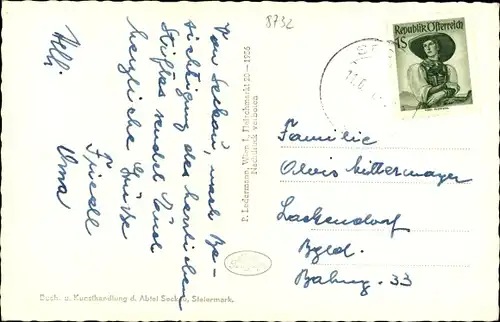 8732
Republik Österreich
1S
Von Seckau, nach Be-
sichtigung des herrlichen
Stiftes sendet Euch
herzliche Grüße
Friedl
Oma
P. Ledermann, Wien I., Fleischmarkt 20 — 1955
Nachdruck verboten
Familie
Alois Mittermayer
Lackendorf
Bgld.
Bahng. 33
Buch- u. Kunsthandlung d. Abtei Seckau, Steiermark.